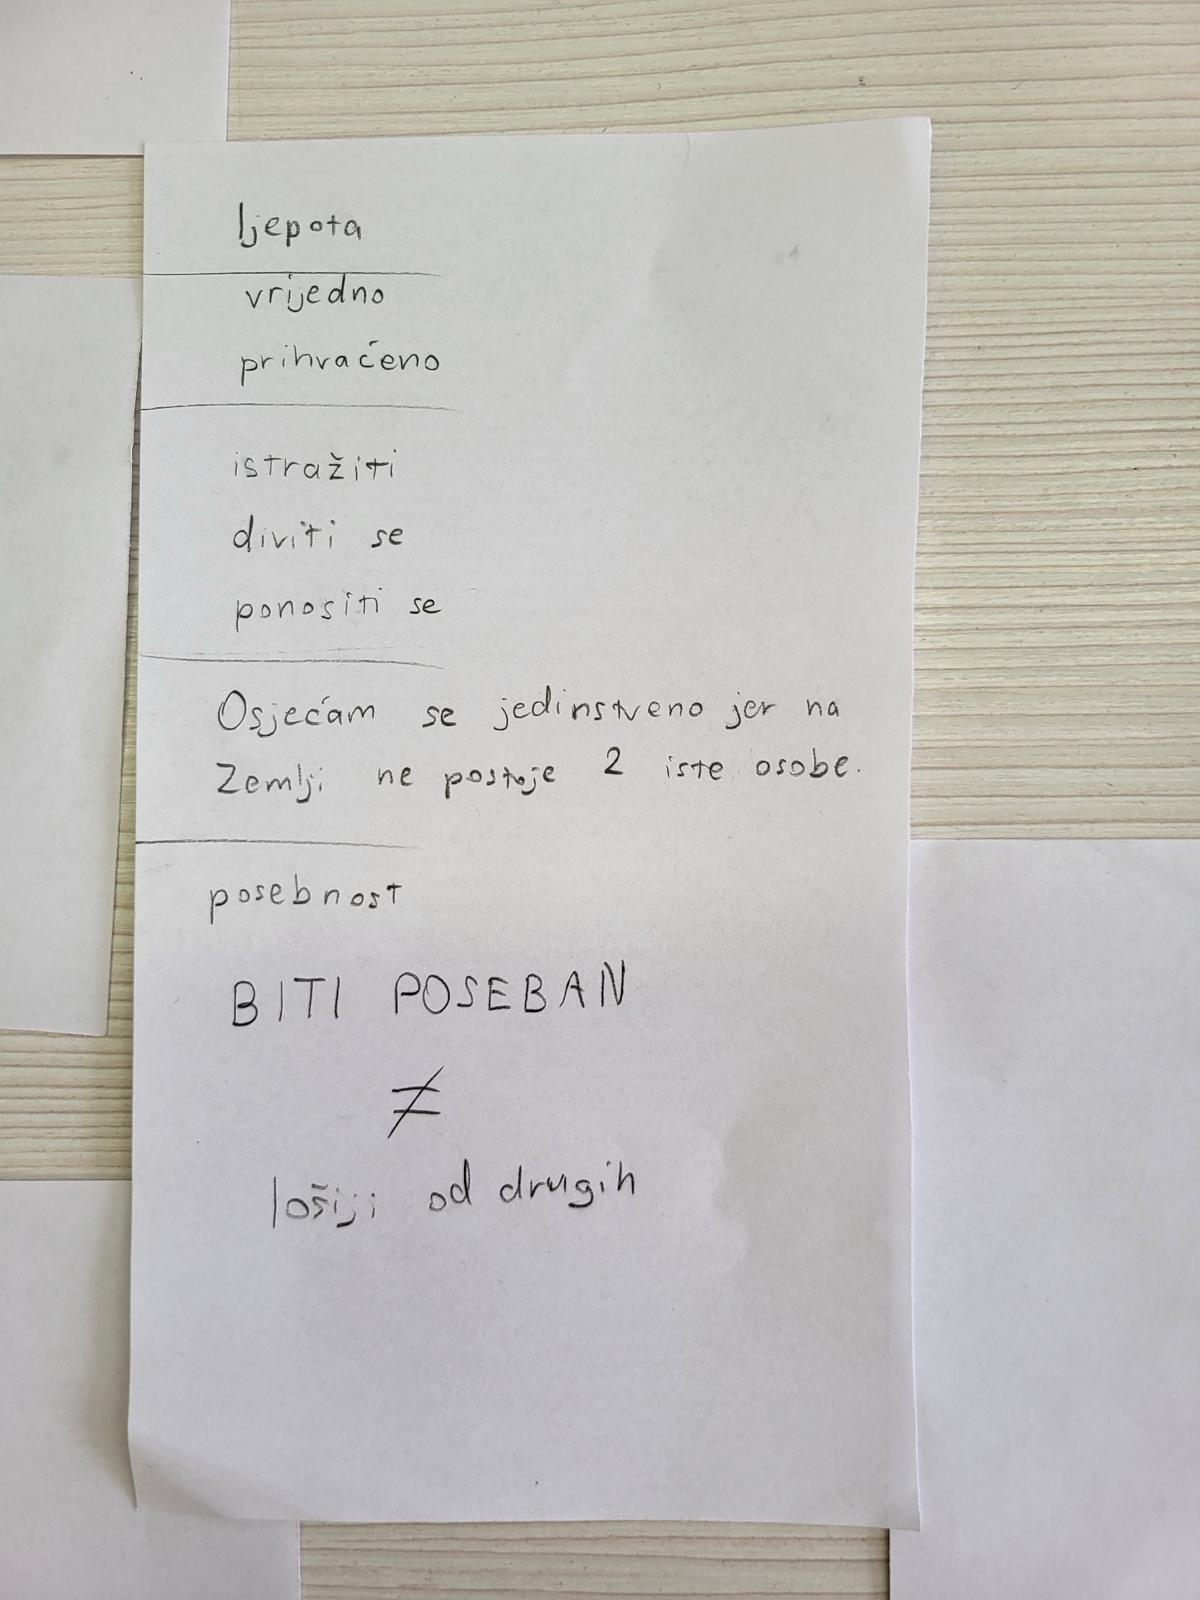 ljepota
vrijedno
prihvaćeno
istražiti
diviti se
ponositi se
Osjećam se jedinstveno jer na
Zemlji ne postoje 2 iste osobe.
posebnost
BITI POSEBAN
≠
lošiji od drugih